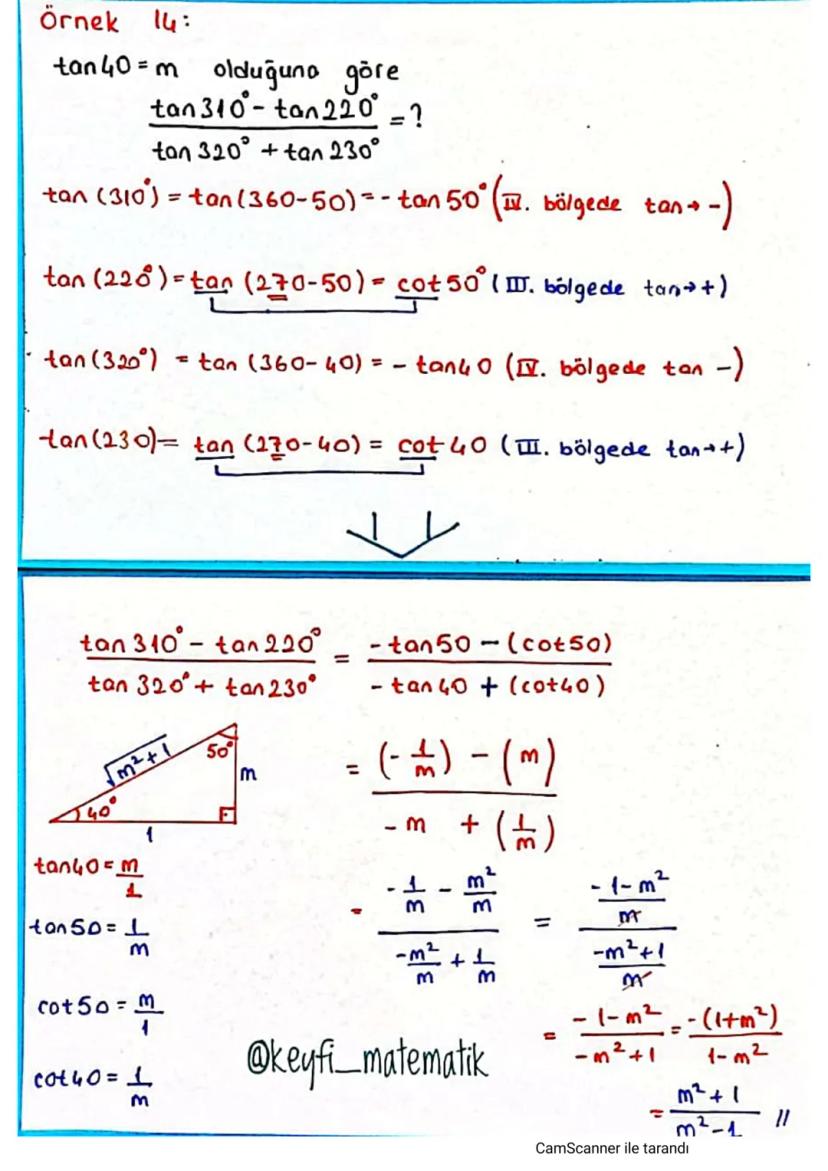 Örnek 14:
tan40=m olduğuna göre
tan310°-tan220° / tan320°+tan230° =?
tan(310°)=tan(360-50)=-tan50° (IV. bölgede tan→-)
tan(220°)=tan(270-50)=cot50° (III. bölgede tan→+)
tan(320°) = tan(360-40) = -tan40 (IV. bölgede tan -)
tan(230)= tan(270-40) = cot40 (III. bölgede tan→+)
tan310°-tan220° / tan320°+tan230° = -tan50-(cot50) / -tan40+(cot40)
√m²+1
50°
m
40°
1
= (-1/m)-(m) / -m+(1/m)
tan40=m/1
= -1/m - m²/m / -m²/m + 1/m = -1-m²/m / -m²+1/m
tan50=1/m
cot50=m/1
= -1-m²/-m²+1 = -(1+m²)/1-m²
@keyfi_matematik
cot40=1/m
= m²+1/m²-1 //
CamScanner ile tarandı